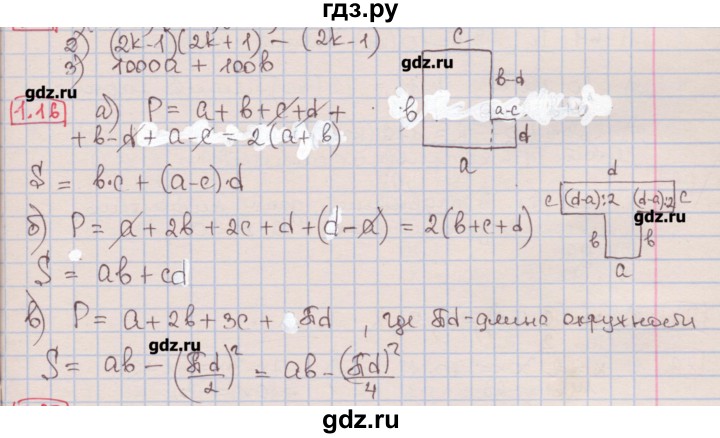 гдз.ру
2) (2k-1)(2k+1) - (2k-1)
3) 1000a + 100b
gdz.ru
1.16 а) P = a + b + c + d +
+ b - d + a - c = 2(a + b)
gdz.ru
S = b·c + (a-c)·d
c
b-d
b
a-c
d
a
gdz.ru
б) P = a + 2b + 2c + d + (d - a) = 2(b+c+d)
S = ab + cd
d
c (d-a):2 (d-a):2 c
gdz.ru
b b
a
в) P = a + 2b + 3c + πd, где πd - длина окружности
gdz.ru
S = ab - (πd/2)² = ab - (πd)²/4
gdz.ru
gdz.ru